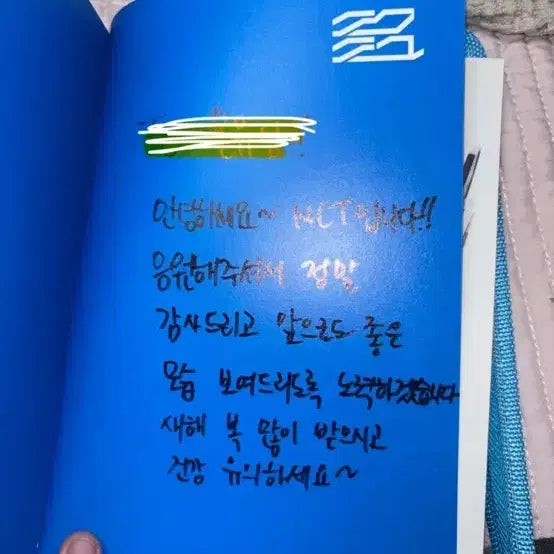 안녕하세요~ NCT입니다!!
응원해주셔서 정말
감사드리고 앞으로도 좋은
모습 보여드리도록 노력하겠습니다
새해 복 많이 받으시고
건강 유의하세요~